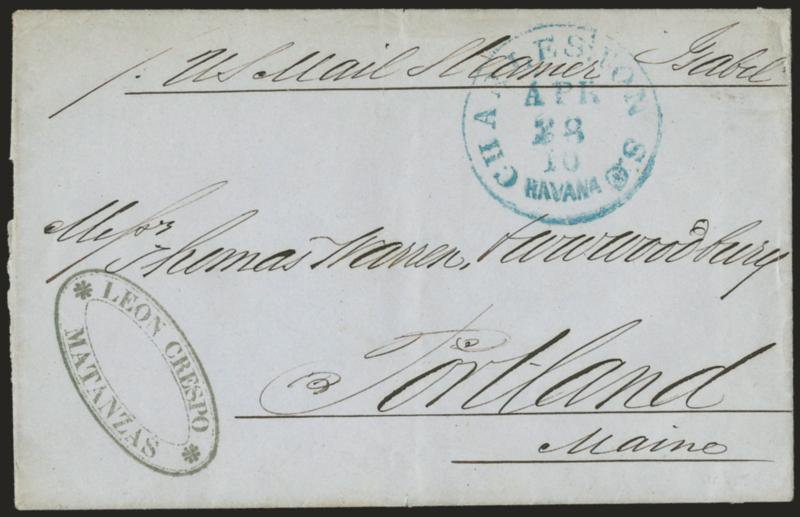 p. US Mail Steamer Isabel
CHARLESTON S.
APR
28
10
HAVANA
Messrs Thomas Warren,
Woodbury
Portland
Maine
LEON CRESPO
MATANZAS